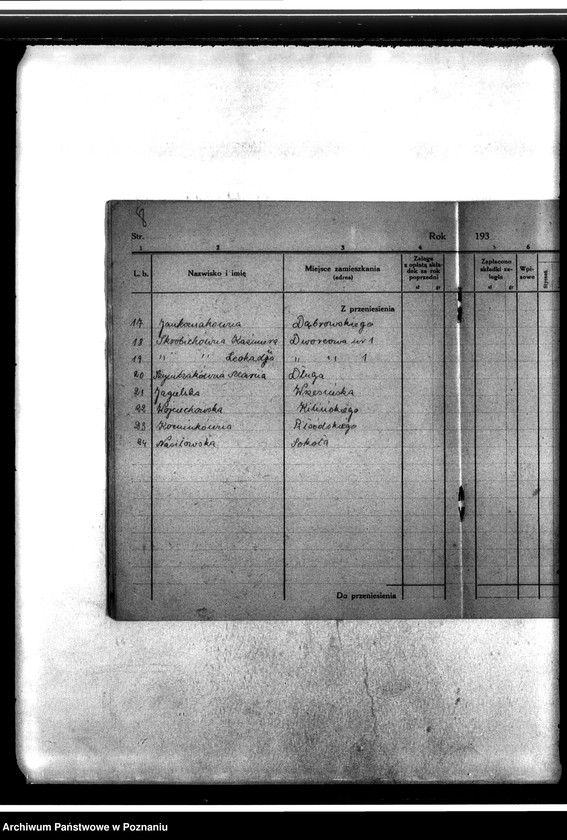 8
Str. Rok 193
1 2 3 4 5 6
L. b. Nazwisko i imię Miejsce zamieszkania (adres) Zalega z opłatą składek za rok poprzedni Zapłacono składki zaległe Wpisowe Styczeń
zł gr zł gr
Z przeniesienia
17 Dąbrowskiego
18 Skrobichówna Kazimiera Dworcowa nr 1
19 " " Leokadja " " 1
20 Długa
21 Jagielska Wrzesińska
22 Wojciechowska Kilińskiego
23
24 Nasiłowska Sokoła
Do przeniesienia
Archiwum Państwowe w Poznaniu